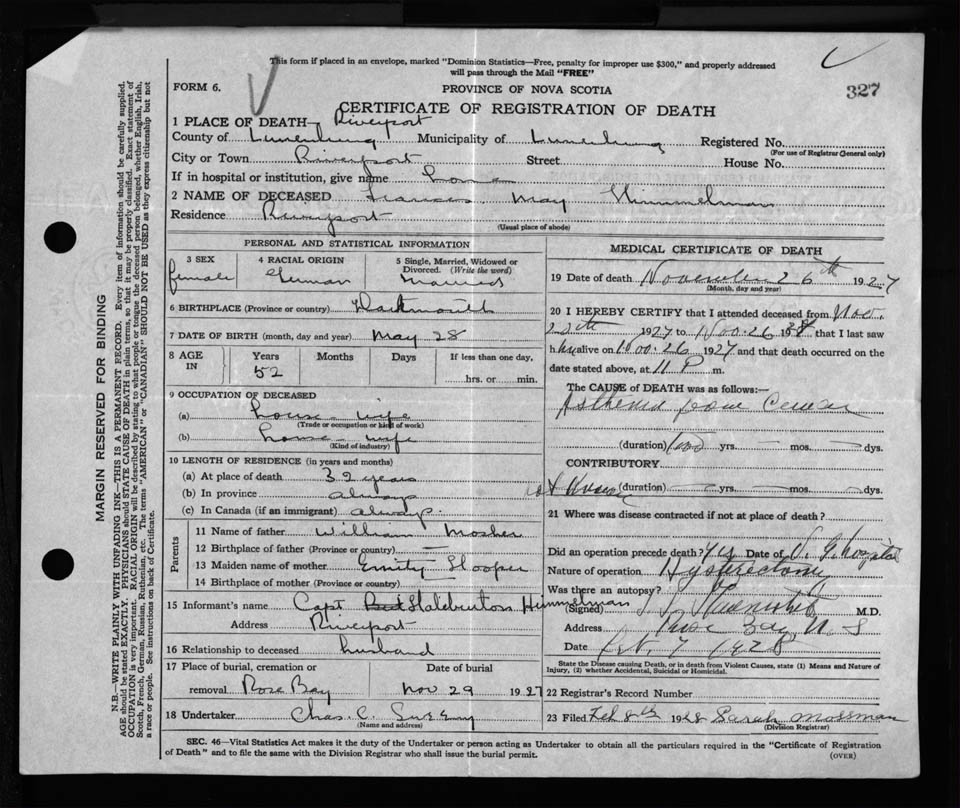 This form if placed in an envelope, marked "Dominion Statistics—Free, penalty for improper use $300," and properly addressed
will pass through the Mail "FREE"
FORM 6.
PROVINCE OF NOVA SCOTIA
327
CERTIFICATE OF REGISTRATION OF DEATH
1 PLACE OF DEATH— Riverport
County of Lunenburg Municipality of Lunenburg Registered No.
(For use of Registrar General only)
City or Town Riverport Street House No.
If in hospital or institution, give name
2 NAME OF DECEASED Frances May Himmelman
Residence Riverport
(Usual place of abode)
PERSONAL AND STATISTICAL INFORMATION
3 SEX 4 RACIAL ORIGIN 5 Single, Married, Widowed or
Divorced. (Write the word)
female German Married
6 BIRTHPLACE (Province or country) Dartmouth
7 DATE OF BIRTH (month, day and year) May 28
8 AGE IN Years Months Days If less than one day,
52 hrs. or min.
9 OCCUPATION OF DECEASED
(a) house-wife
(Trade or occupation or kind of work)
(b) house-wife
(Kind of industry)
10 LENGTH OF RESIDENCE (in years and months)
(a) At place of death 32 years
(b) In province always
(c) In Canada (if an immigrant) always.
Parents
11 Name of father William Mosher
12 Birthplace of father (Province or country) —
13 Maiden name of mother Emily
14 Birthplace of mother (Province or country)
15 Informant's name Capt. Himmelman
Address Riverport
16 Relationship to deceased husband
17 Place of burial, cremation or Date of burial
removal Rose Bay Nov 29 1927
18 Undertaker Chas. C.
(Name and address)
MEDICAL CERTIFICATE OF DEATH
19 Date of death November 26th 1927
(Month, day and year)
20 I HEREBY CERTIFY that I attended deceased from Nov.
1927 to Nov. 26 19 that I last saw
her alive on Nov. 26 1927 and that death occurred on the
date stated above, at 11 P m.
The CAUSE of DEATH was as follows:—
Asthenia from Cancer
(duration) yrs. — mos. — dys.
CONTRIBUTORY
(duration) — yrs. — mos. — dys.
21 Where was disease contracted if not at place of death?
Did an operation precede death? Yes Date of V. G. Hospital
Nature of operation Hysterectomy
Was there an autopsy? No
(Signed) M.D.
Address Rose Bay N. S
Date Feb. 7 1928
State the Disease causing Death, or in death from Violent Causes, state (1) Means and Nature of
Injury, (2) whether Accidental, Suicidal or Homicidal.
22 Registrar's Record Number
23 Filed Feb 8th 1928 Sarah Mossman
(Division Registrar)
SEC. 46—Vital Statistics Act makes it the duty of the Undertaker or person acting as Undertaker to obtain all the particulars required in the "Certificate of Registration
of Death" and to file the same with the Division Registrar who shall issue the burial permit.
(OVER)
MARGIN RESERVED FOR BINDING
N.B.—WRITE PLAINLY WITH UNFADING INK—THIS IS A PERMANENT RECORD. Every item of information should be carefully supplied.
AGE should be stated EXACTLY. PHYSICIANS should STATE CAUSE OF DEATH in plain terms, so that it may be properly classified. Exact statement of
OCCUPATION is very important. RACIAL ORIGIN will be described by stating to what people or tongue the deceased person belonged, whether English, Irish,
Scotch, French, German, Russian, Ruthenian, etc. The terms "AMERICAN" or "CANADIAN" SHOULD NOT BE USED as they express citizenship but not
a race or people. See instructions on back of Certificate.